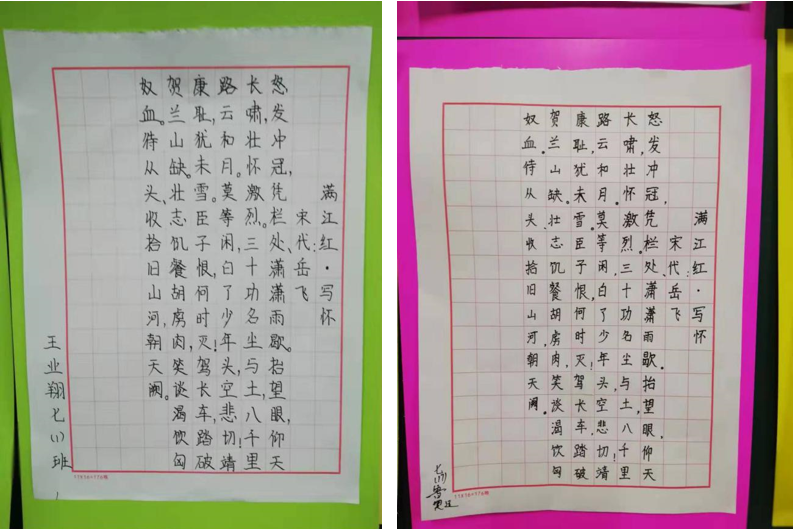 满江红·写怀
宋代:岳飞
怒发冲冠,凭栏处、潇潇雨歇。抬望眼,仰天
长啸,壮怀激烈。三十功名尘与土,八千里
路云和月。莫等闲,白了少年头,空悲切!靖
康耻,犹未雪。臣子恨,何时灭!驾长车,踏破
贺兰山缺。壮志饥餐胡虏肉,笑谈渴饮匈
奴血。待从头、收拾旧山河,朝天阙。
王业翔七(1)班
满江红·写怀
宋代:岳飞
怒发冲冠,凭栏处、潇潇雨歇。抬望眼,仰天
长啸,壮怀激烈。三十功名尘与土,八千里
路云和月。莫等闲,白了少年头,空悲切!靖
康耻,犹未雪。臣子恨,何时灭!驾长车,踏破
贺兰山缺。壮志饥餐胡虏肉,笑谈渴饮匈
奴血。待从头、收拾旧山河,朝天阙。
七(1)